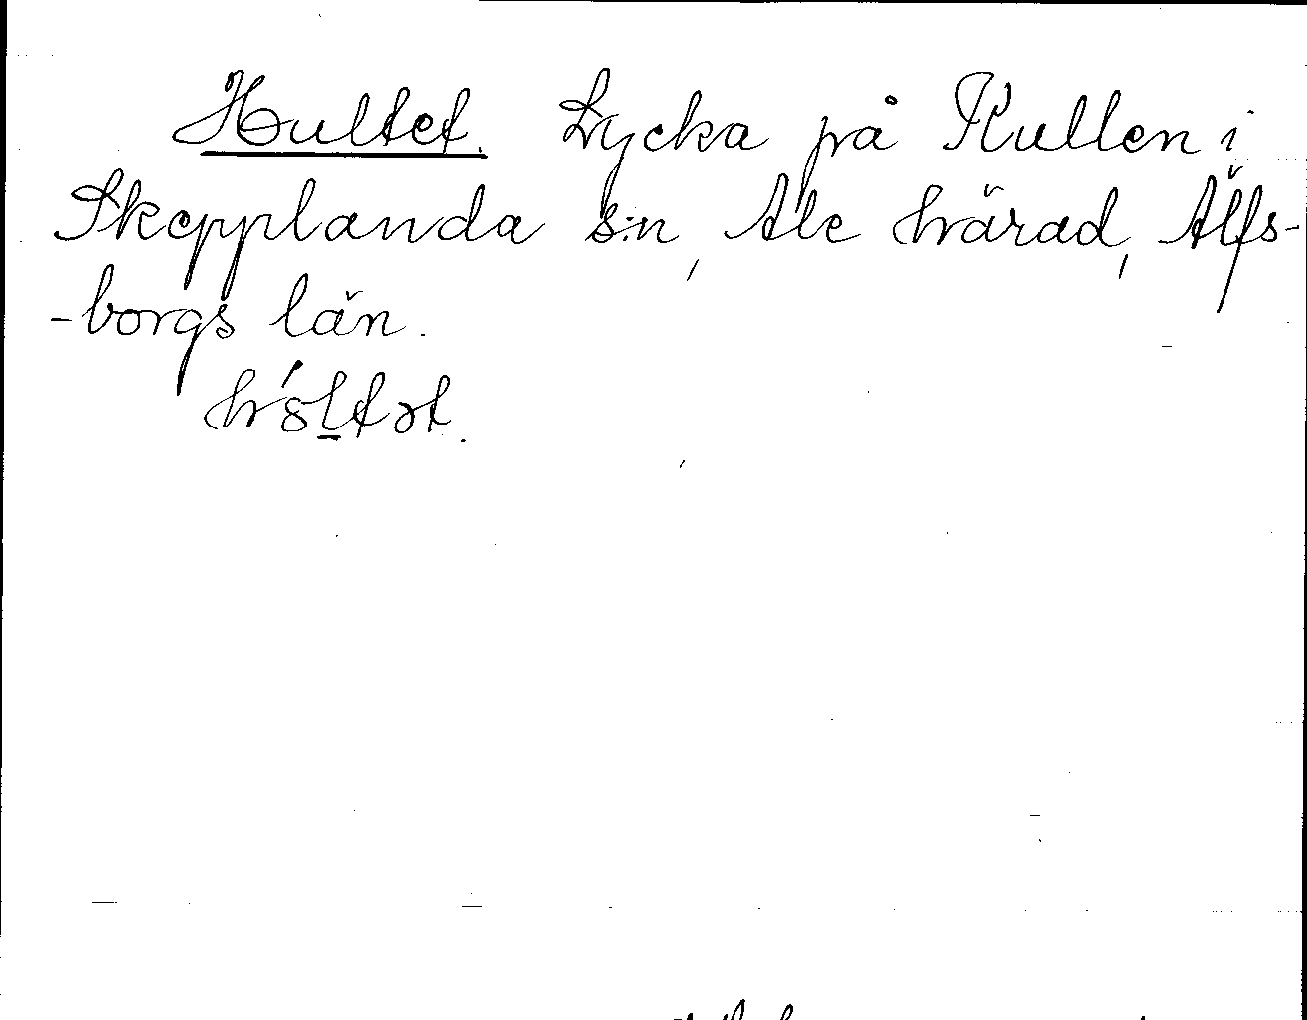 Hultet. Lycka på Kullen i
Skepplanda s:n, Ale härad, Älfs-
-borgs län.